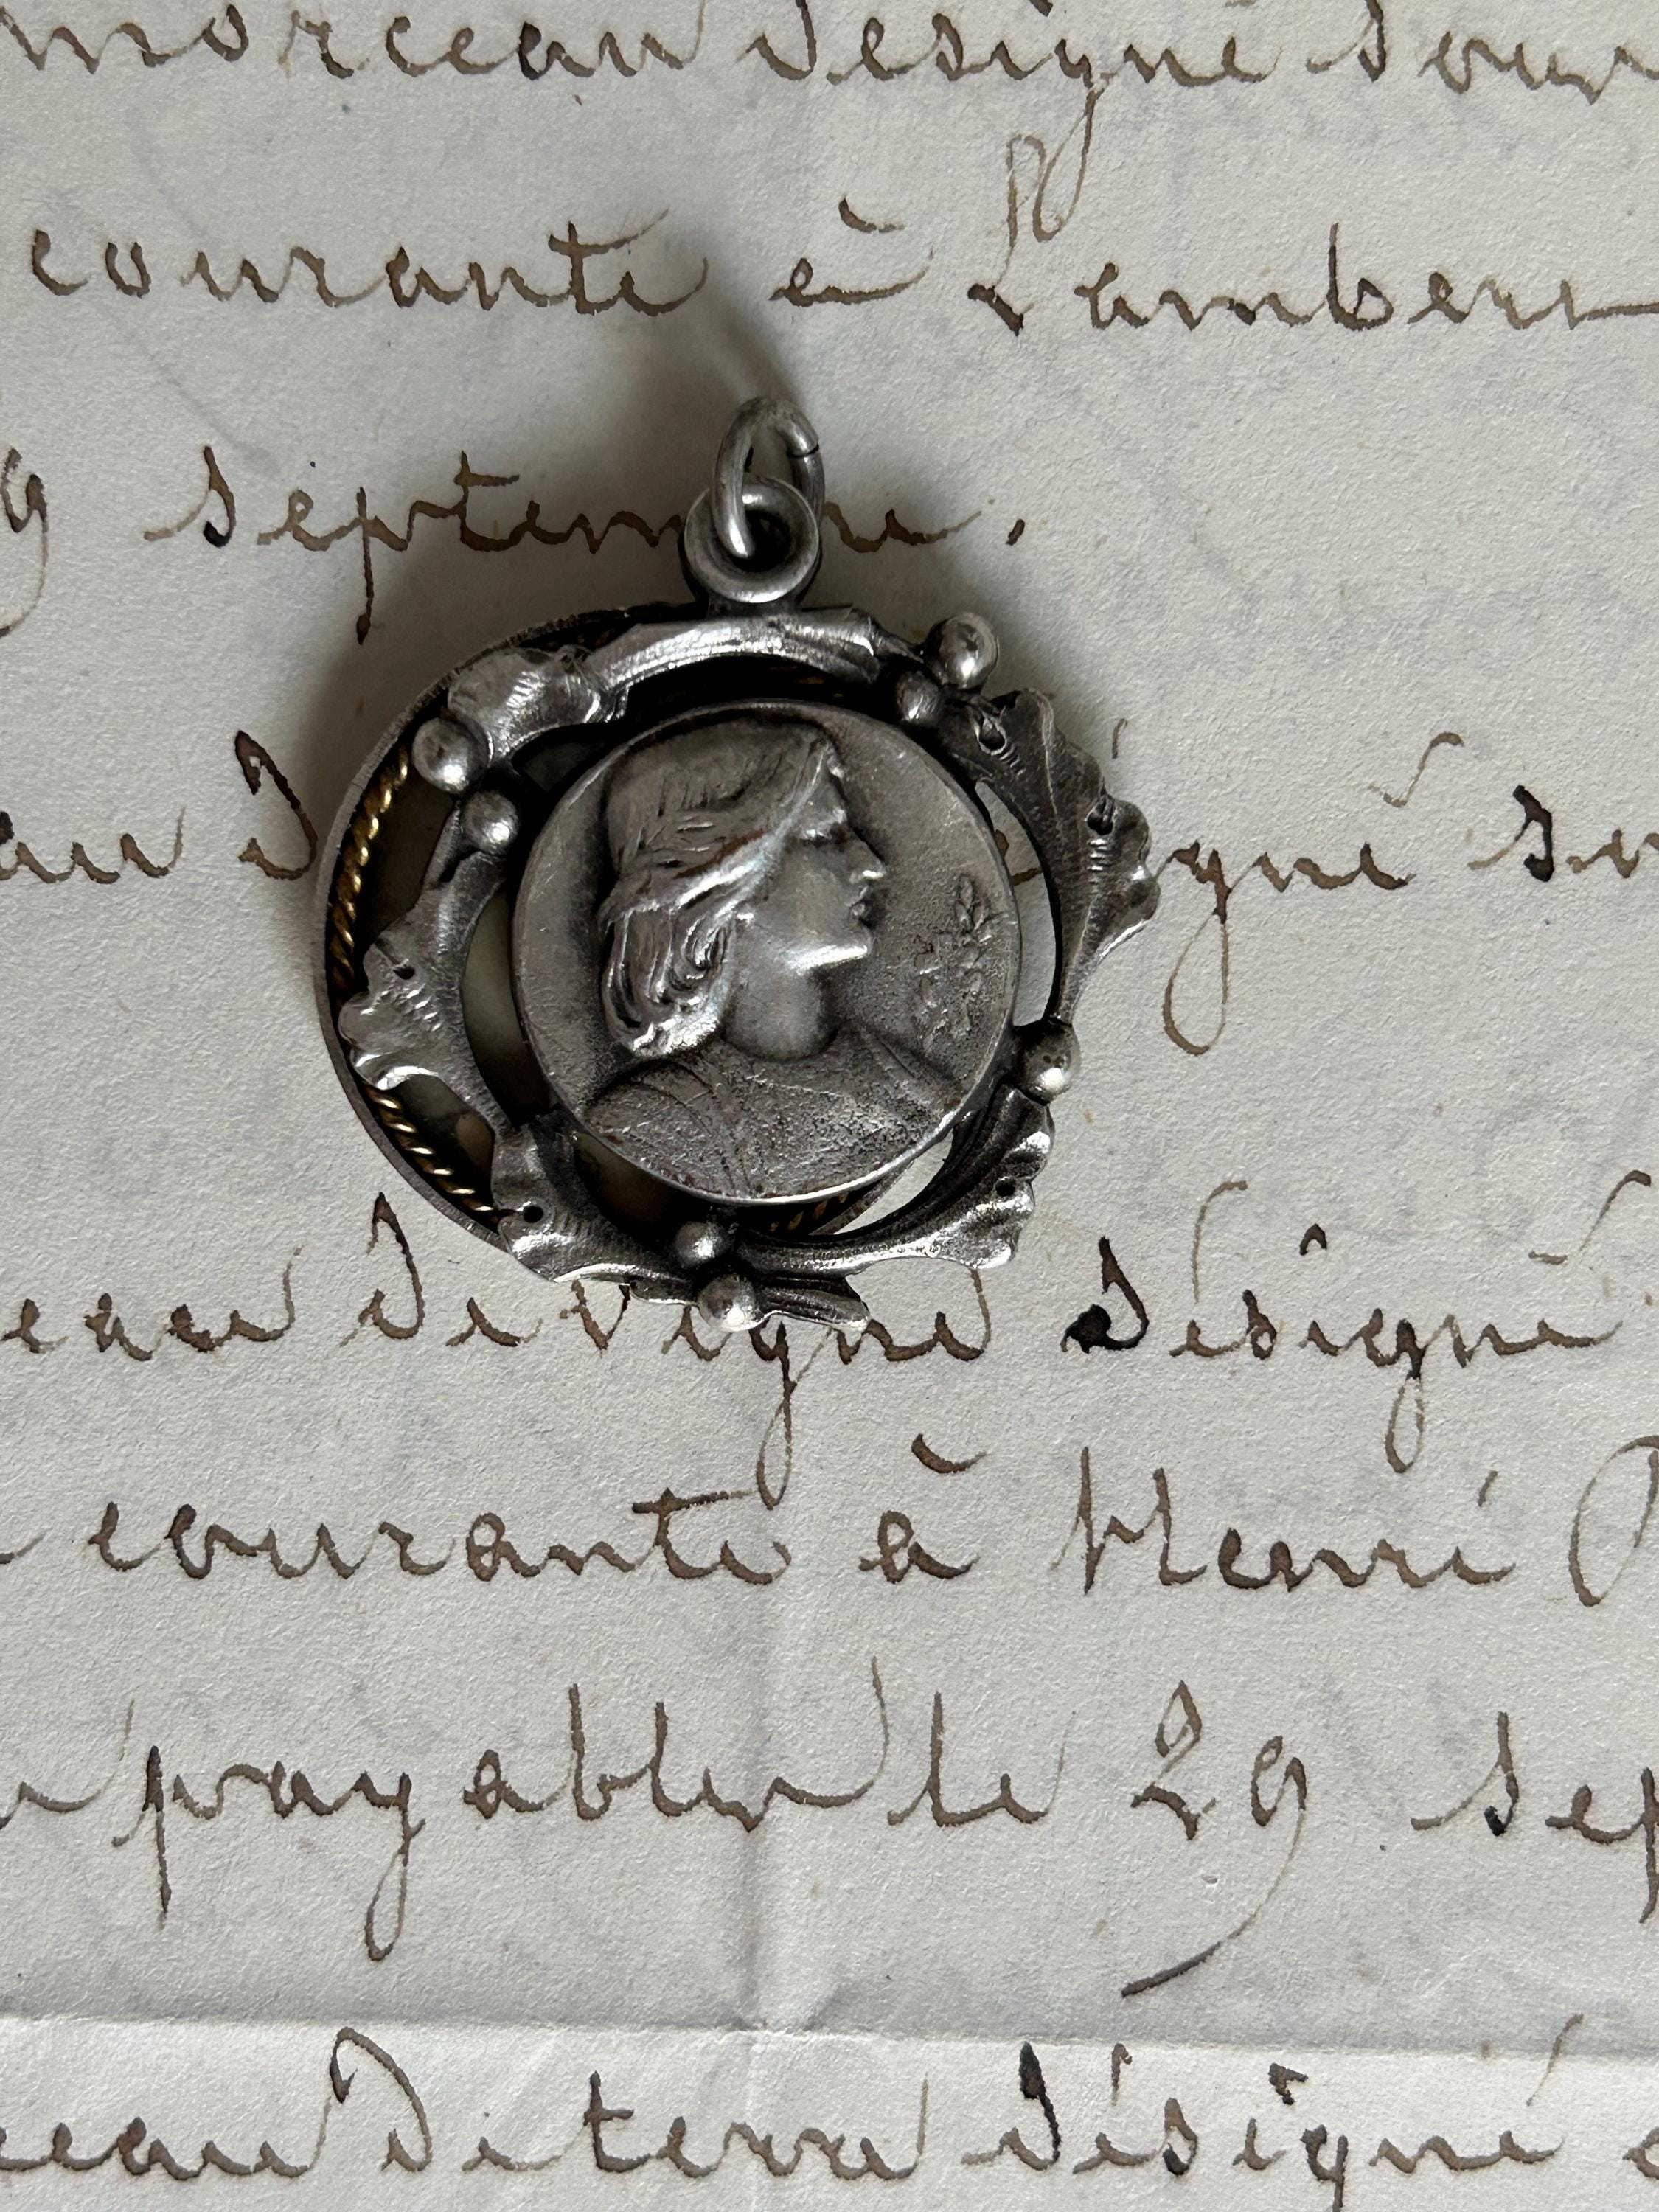 morceau désigné sous
courante à Lambert
9 septembre.
au d igné so
eau de vigne désigné
courante à Henri
payable le 29 sep
eau de terre désigné